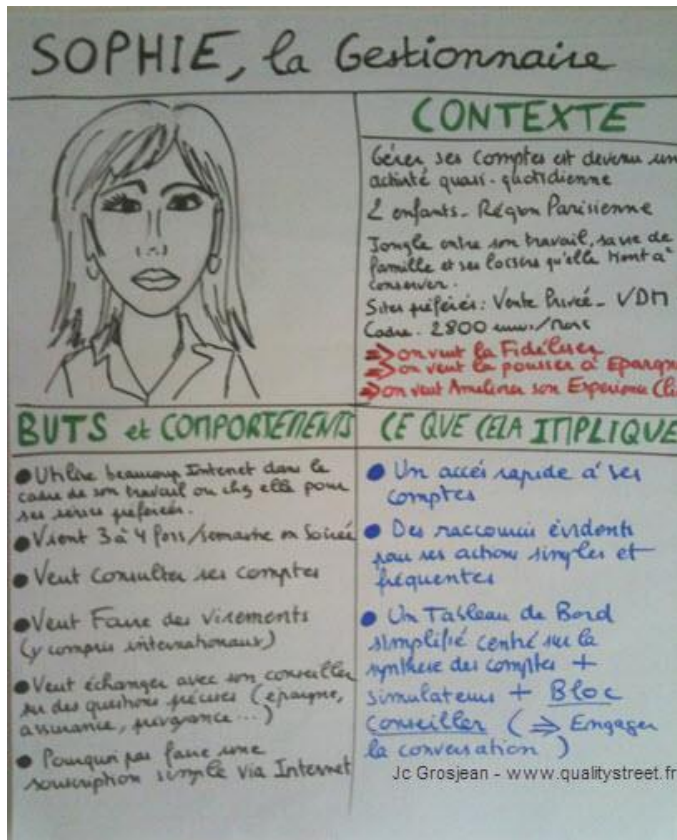 SOPHIE, la Gestionnaire
CONTEXTE
Gérer ses comptes est devenu une
activité quasi-quotidienne
2 enfants - Région Parisienne
Jongle entre son travail, sa vie de
famille et ses loisirs qu'elle tient à
conserver.
Sites préférés : Vente Privée - VDM
Cadre. 2800 euros/mois
=> on veut la Fidéliser
=> on veut la pousser à Epargn
=> on veut Améliorer son Experience Cli
BUTS et COMPORTEMENTS
● Utilise beaucoup Internet dans le
cadre de son travail ou chez elle pour
ses préférés.
● Vient 3 à 4 fois/semaine en Soirée
● Veut Consulter ses comptes
● Veut Faire des Virements
(y compris internationaux)
● Veut échanger avec son conseiller
sur des questions précises (épargne,
assurance, prévoyance ...)
● Pourquoi pas faire une
souscription simple via Internet
CE QUE CELA IMPLIQUE
● Un accès rapide à ses
comptes
● Des raccourcis évidents
pour ses actions simples et
fréquentes
● Un Tableau de Bord
simplifié centré sur la
synthèse des comptes +
simulateurs + Bloc
Conseiller ( => Engager
la conversation )
Jc Grosjean - www.qualitystreet.fr